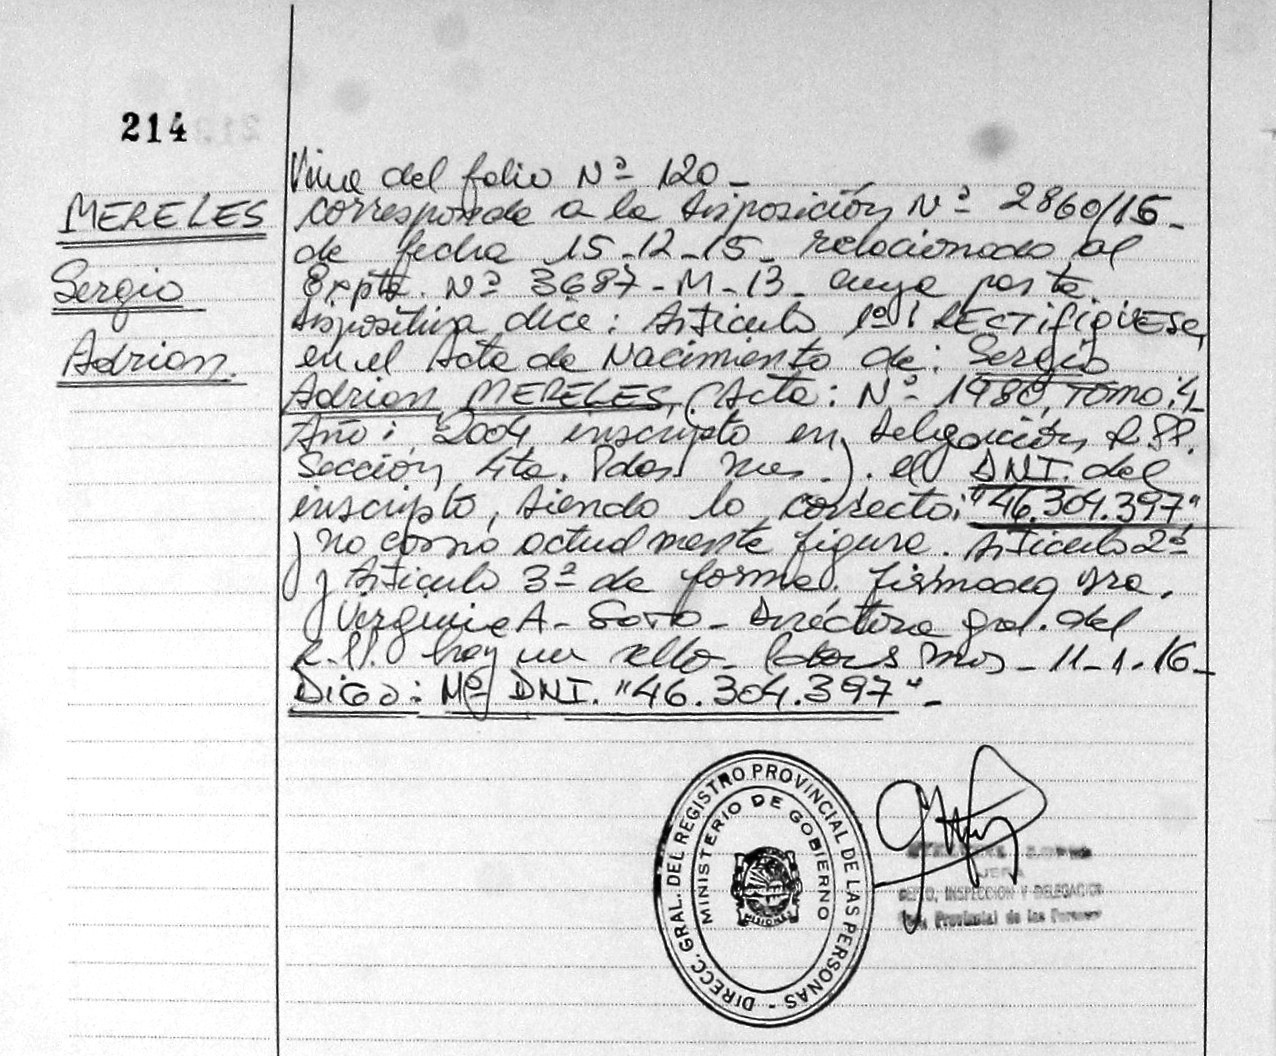 214
MERELES
Sergio
Adrian.
Viene del folio Nº 120_
corresponde a la disposición Nº 2860/15_
de fecha 15-12-15_ relacionado al
Expte. Nº 3687-M-13_ cuya parte
dispositiva dice: Articulo 1º: RECTIFIQUESE,
en el Acta de Nacimiento de: Sergio
Adrian MERELES, (Acta: Nº 1980, Tomo: 4_
Año: 2004, inscripto en delegación R.PP.
Sección 4ta. Pdas Mnes.). el DNI. del
inscripto, siendo lo correcto: "46.304.397"
y no como actualmente figura. Articulo 2º
y Articulo 3º de forma. firmado
Virginia A. Soto_ Directora Gral. del
R.PP. hay un sello_ Posadas Mnes_ 11-1-16_
Digo: Nº DNI. "46.304.397"_
DIRECC. GRAL. DEL REGISTRO PROVINCIAL DE LAS PERSONAS -
MINISTERIO DE GOBIERNO
MISIONES
JEFA
DEPTO. INSPECCION Y DELEGACION
Provincial de las Personas